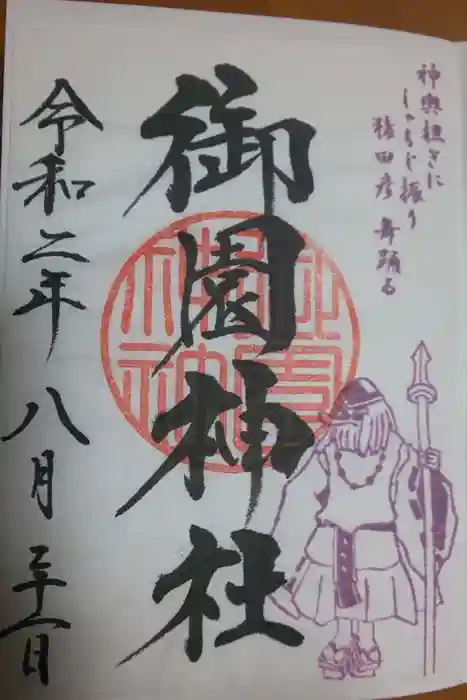 神輿担ぎに
しゃもじ振り
猿田彦 舞踊る
御園神社
令和二年 八月 三十一日